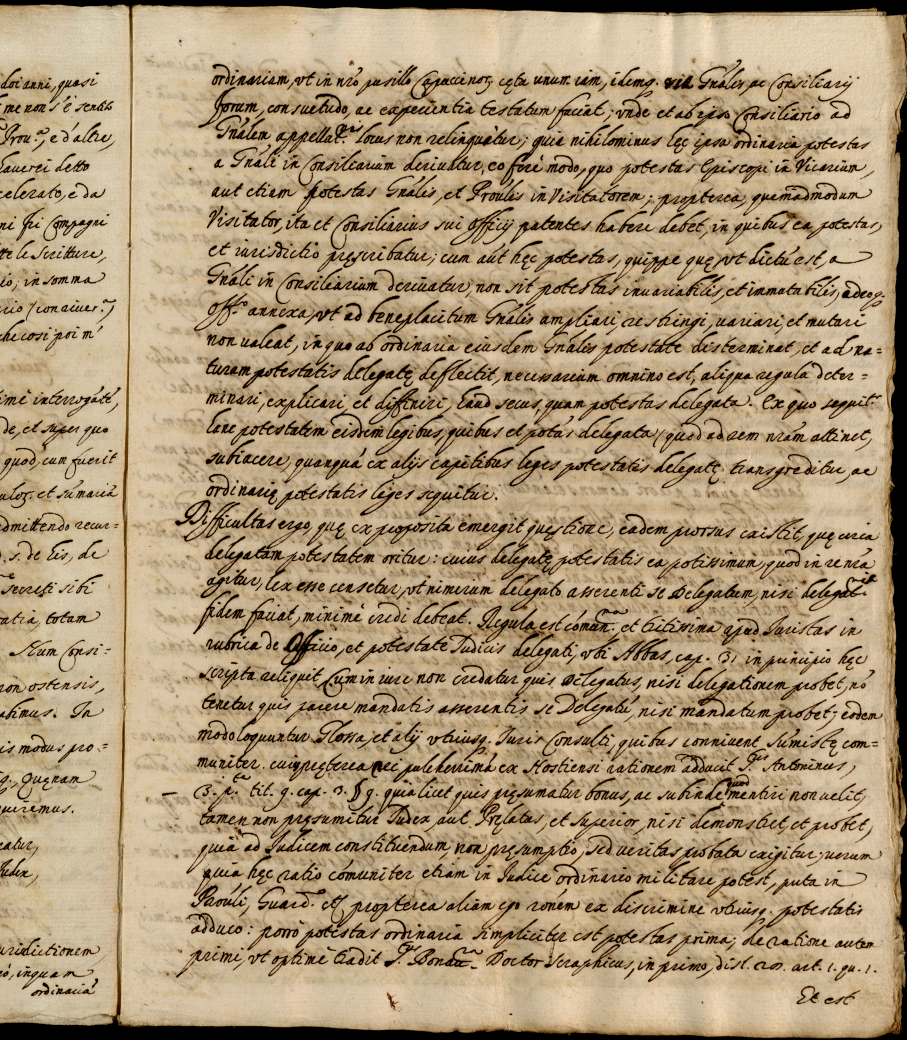 doi anni, quasi
me non s'è sentito
Prou.ⁿ, e d'altre,
hauerei detto
scelerato, e da
ni fri Compagni
tte le scritture,
io; in somma
rio /
che così poi m'
imè interrogatũ,
de, et super quo
quod, cum fuerit
et sũmaria
dmittendo recur=
s. de Eis, de
secreti sibi
ratia, totam
Num Consi=
non ostensis,
abimus. In
is modus pro=
g. Quęnam
quiremus.
eatur,
Iudex,
urisdictionem
iò, inquam
ordinariã
ordinariam, vt in nr̃o pusillo Capuccinoꝝ cętu unum iam, idemq. via Gñalis, ac Consiliarij
forum, consuetudo, ac experientia testatum faciat; vnde et ab ipso Consiliario ad
Gñalem appellat.ⁿⁱˢ locus non relinquatur; quia nihilominus hęc ipsa ordinaria potestas
a Gñali in Consiliarium deriuatur, eo ferè modo, quo potestas Episcopi in Vicarium,
aut etiam potestas Gñalis, et Proũlis in Visitatorem; propterea, quemadmodum
Visitator, ita et Consiliarius sui officij patentes habere debet, in quibus ea potestas,
et iurisdictio pręscribatur; cum aũt hęc potestas, quippe quę, vt dictũ est, a
Gñali in Consiliarium deriuatur, non sit potestas inuariabilis, et immutabilis, adeoq.
off.º annexa, vt ad beneplacitum Gñalis ampliari, restringi, uariari, et mutari
non ualeat, in quo ab ordinaria eiusdem Gñalis potestate disterminat, et ad na=
turam potestatis delegatę deflectit, necessarium omnino est, aliqua regula deter=
minari, explicari, et diffiniri, haud secus, quam potestas delegata. Ex quo sequit.ʳ
hanc potestatem eisdem legibus, quibus et potãs delegata / quod ad rem nr̃am attinet,
subiacere, quanquã ex alijs capitibus leges potestatis delegatę transgreditur, ac
ordinarię potestatis leges sequitur.
Difficultas ergo, quę ex proposita emergit quęstione, eadem prorsus existit, quę circa
delegatam potestatem oritur: cuius delegatę potestatis ea potissimum, quod in re nr̃a
agitur, lex esse censetur, vt nimirum delegato asserenti se Delegatum, nisi delegat.ⁿⁱˢ
fidem faciat, minimè credi debeat. Regula est cõmun.ⁿ et tritissima apud Iuristas in
rubrica de Officio, et potestate Iudicis delegati; vbi Abbas, cap. 31 in principio hęc
scripta reliquit, Cum in iure non credatur quis Delegatus, nisi delegationem probet, nõ
tenetur quis parere mandatis asserentis se Delegatũ, nisi mandatum probet; eodem
modo loquuntur Glossa, et alij vtriusq. Iuris Consulti, quibus conniuent Sũmistę com=
muniter. cuiꝙ pręterea nec pulcherrimã ex Hostiensi rationem adducit S.ᵗᵘˢ Antoninus,
3. p.ᵗᵉ tit. 9. cap. 3. § 9. quia licet quis pręsumatur bonus, ac subinde quod mentiri non uelit,
tamen non pręsumitur Iudex, aut Pręlatus, et superior, nisi demonstret, et probet,
quia ad Iudicem constituendum, non pręsumptio, sed veritas probata exigitur; verum
quia hęc ratio cõmuniter etiam in Iudice ordinario militare potest, puta in
Proũli, Guard. etc propterea aliam ego rõnem ex discrimine vtriusq. potestatis
adduco: porrò potestas ordinaria simpliciter est potestas prima; de ratione autem
primi, vt optimè tradit S. Bonau.ʳᵃ Doctor Seraphicus, in primo, dist. art. 1. qu. 1.
Et est